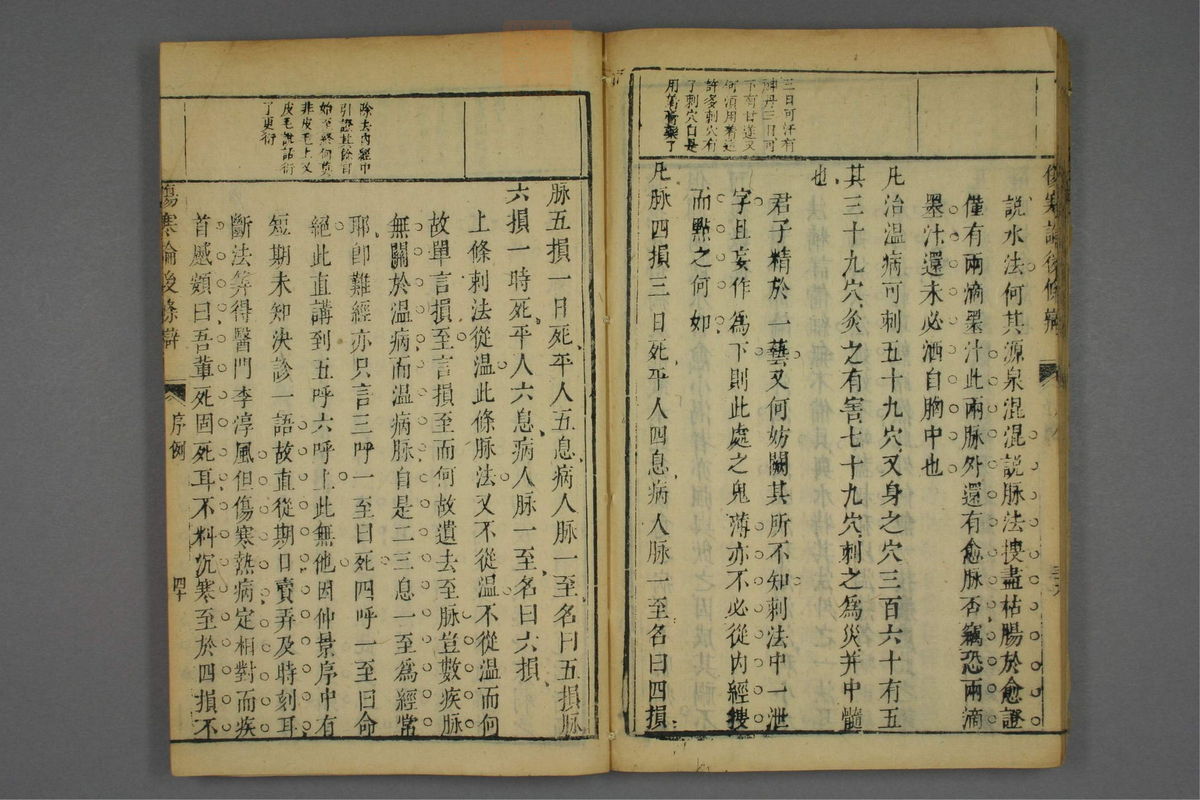 三日可汗有
神丹三日可
下有甘遂又
何須用着這
許多刺穴有
了刺穴自是
用萬膏藥了
傷寒論後條辯
說水法何其源泉混混說脉法搜盡枯腸於愈證
僅有兩滴墨汁此兩脉外還有愈脉否竊恐兩滴
墨汁還未必洒自胸中也
凡治温病可刺五十九穴又身之穴三百六十有五
其三十九穴灸之有害七十九穴刺之爲災并中髓
也
君子精於一藝又何妨闕其所不知刺法中一泄
字且妄作爲下則此處之鬼薄亦不必從内經搜
而點之何如
凡脉四損三日死平人四息病人脉一至名曰四損
除去内經中
引證其餘自
始至終何莫
非皮毛上又
皮毛說話衍
了更衍
脉五損一日死平人五息病人脉一至名曰五損脉
六損一時死平人六息病人脉一至名曰六損
上條刺法從温此條脉法又不從温不從温而何
故單言損至言損至而何故遺去至脉豈數疾脉
無關於温病而温病脉自是二三息一至爲經常
耶卽難經亦只言三呼一至曰死四呼一至曰命
絕此直講到五呼六呼上此無他因仲景序中有
短期未知決診一語故直從期日賣弄及時刻耳
斷法筭得醫門李淳風但傷寒熱病定相對而疾
首蹙頞曰吾輩死固死耳不料沉寒至於四損不
傷寒論後條辯
序例
四十